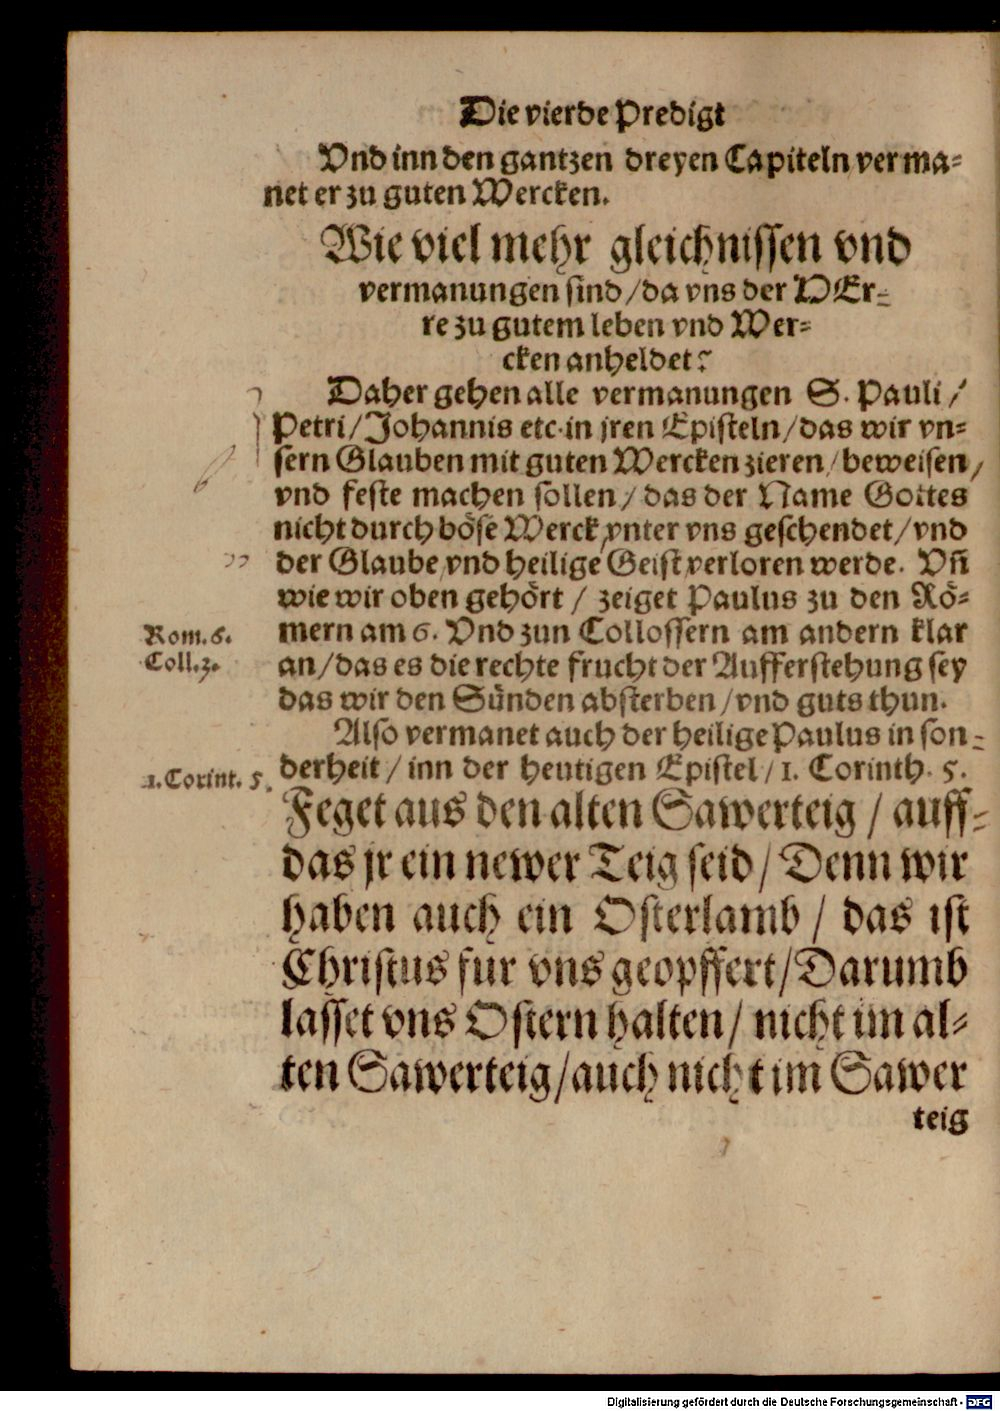 Die vierde Predigt
Vnd inn den gantzen dreyen Capiteln verma-
net er zu guten Wercken.
Wie viel mehr gleichnissen vnd
vermanungen sind/da vns der HErr-
re zu gutem leben vnd Wer-
cken anheldet?
Daher gehen alle vermanungen S. Pauli/
Petri/Johannis etc. in jren Episteln/das wir vn-
sern Glauben mit guten Wercken zieren/beweisen/
vnd feste machen sollen/das der Name Gottes
nicht durch böse Werck vnter vns geschendet/vnd
der Glaube vnd heilige Geist verloren werde. Vñ
wie wir oben gehört / zeiget Paulus zu den Rö-
Rom. 6.
mern am 6. Vnd zun Collossern am andern klar
Coll. 3.
an/das es die rechte frucht der Aufferstehung sey
das wir den Sünden absterben/vnd guts thun.
Also vermanet auch der heilige Paulus in son-
1. Corint. 5.
derheit/inn der heutigen Epistel/1. Corinth. 5.
Feget aus den alten Sawerteig / auff-
das jr ein newer Teig seid/Denn wir
haben auch ein Osterlamb / das ist
Christus fur vns geopffert/Darumb
lasset vns Ostern halten/ nicht im al-
ten Sawerteig/auch nicht im Sawer
teig
Digitalisierung gefördert durch die Deutsche Forschungsgemeinschaft - DFG